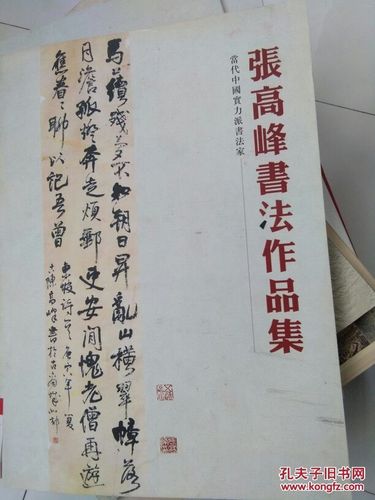 張高峰書法作品集
當代中國實力派書法家
馬上續殘夢不知朝日昇亂山橫翠幛落
月澹孤燈奔走煩郵吏安閒愧老僧再遊
應眷〻聊以記吾曾
東坡詩 年夏
高峰書於古
孔夫子旧书网